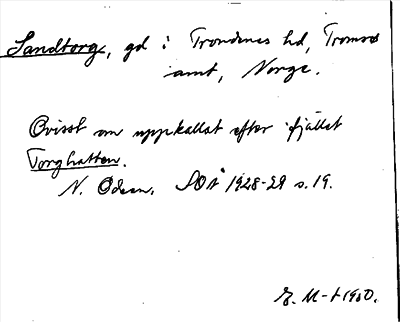 Sandtorg, gd i Trondenes hd, Tromsø
amt, Norge.
Ovisst om uppkallat efter fjället
Torghatten.
N. Odeen. SOÅ 1928-29 s. 19.
E. M-t 1950.